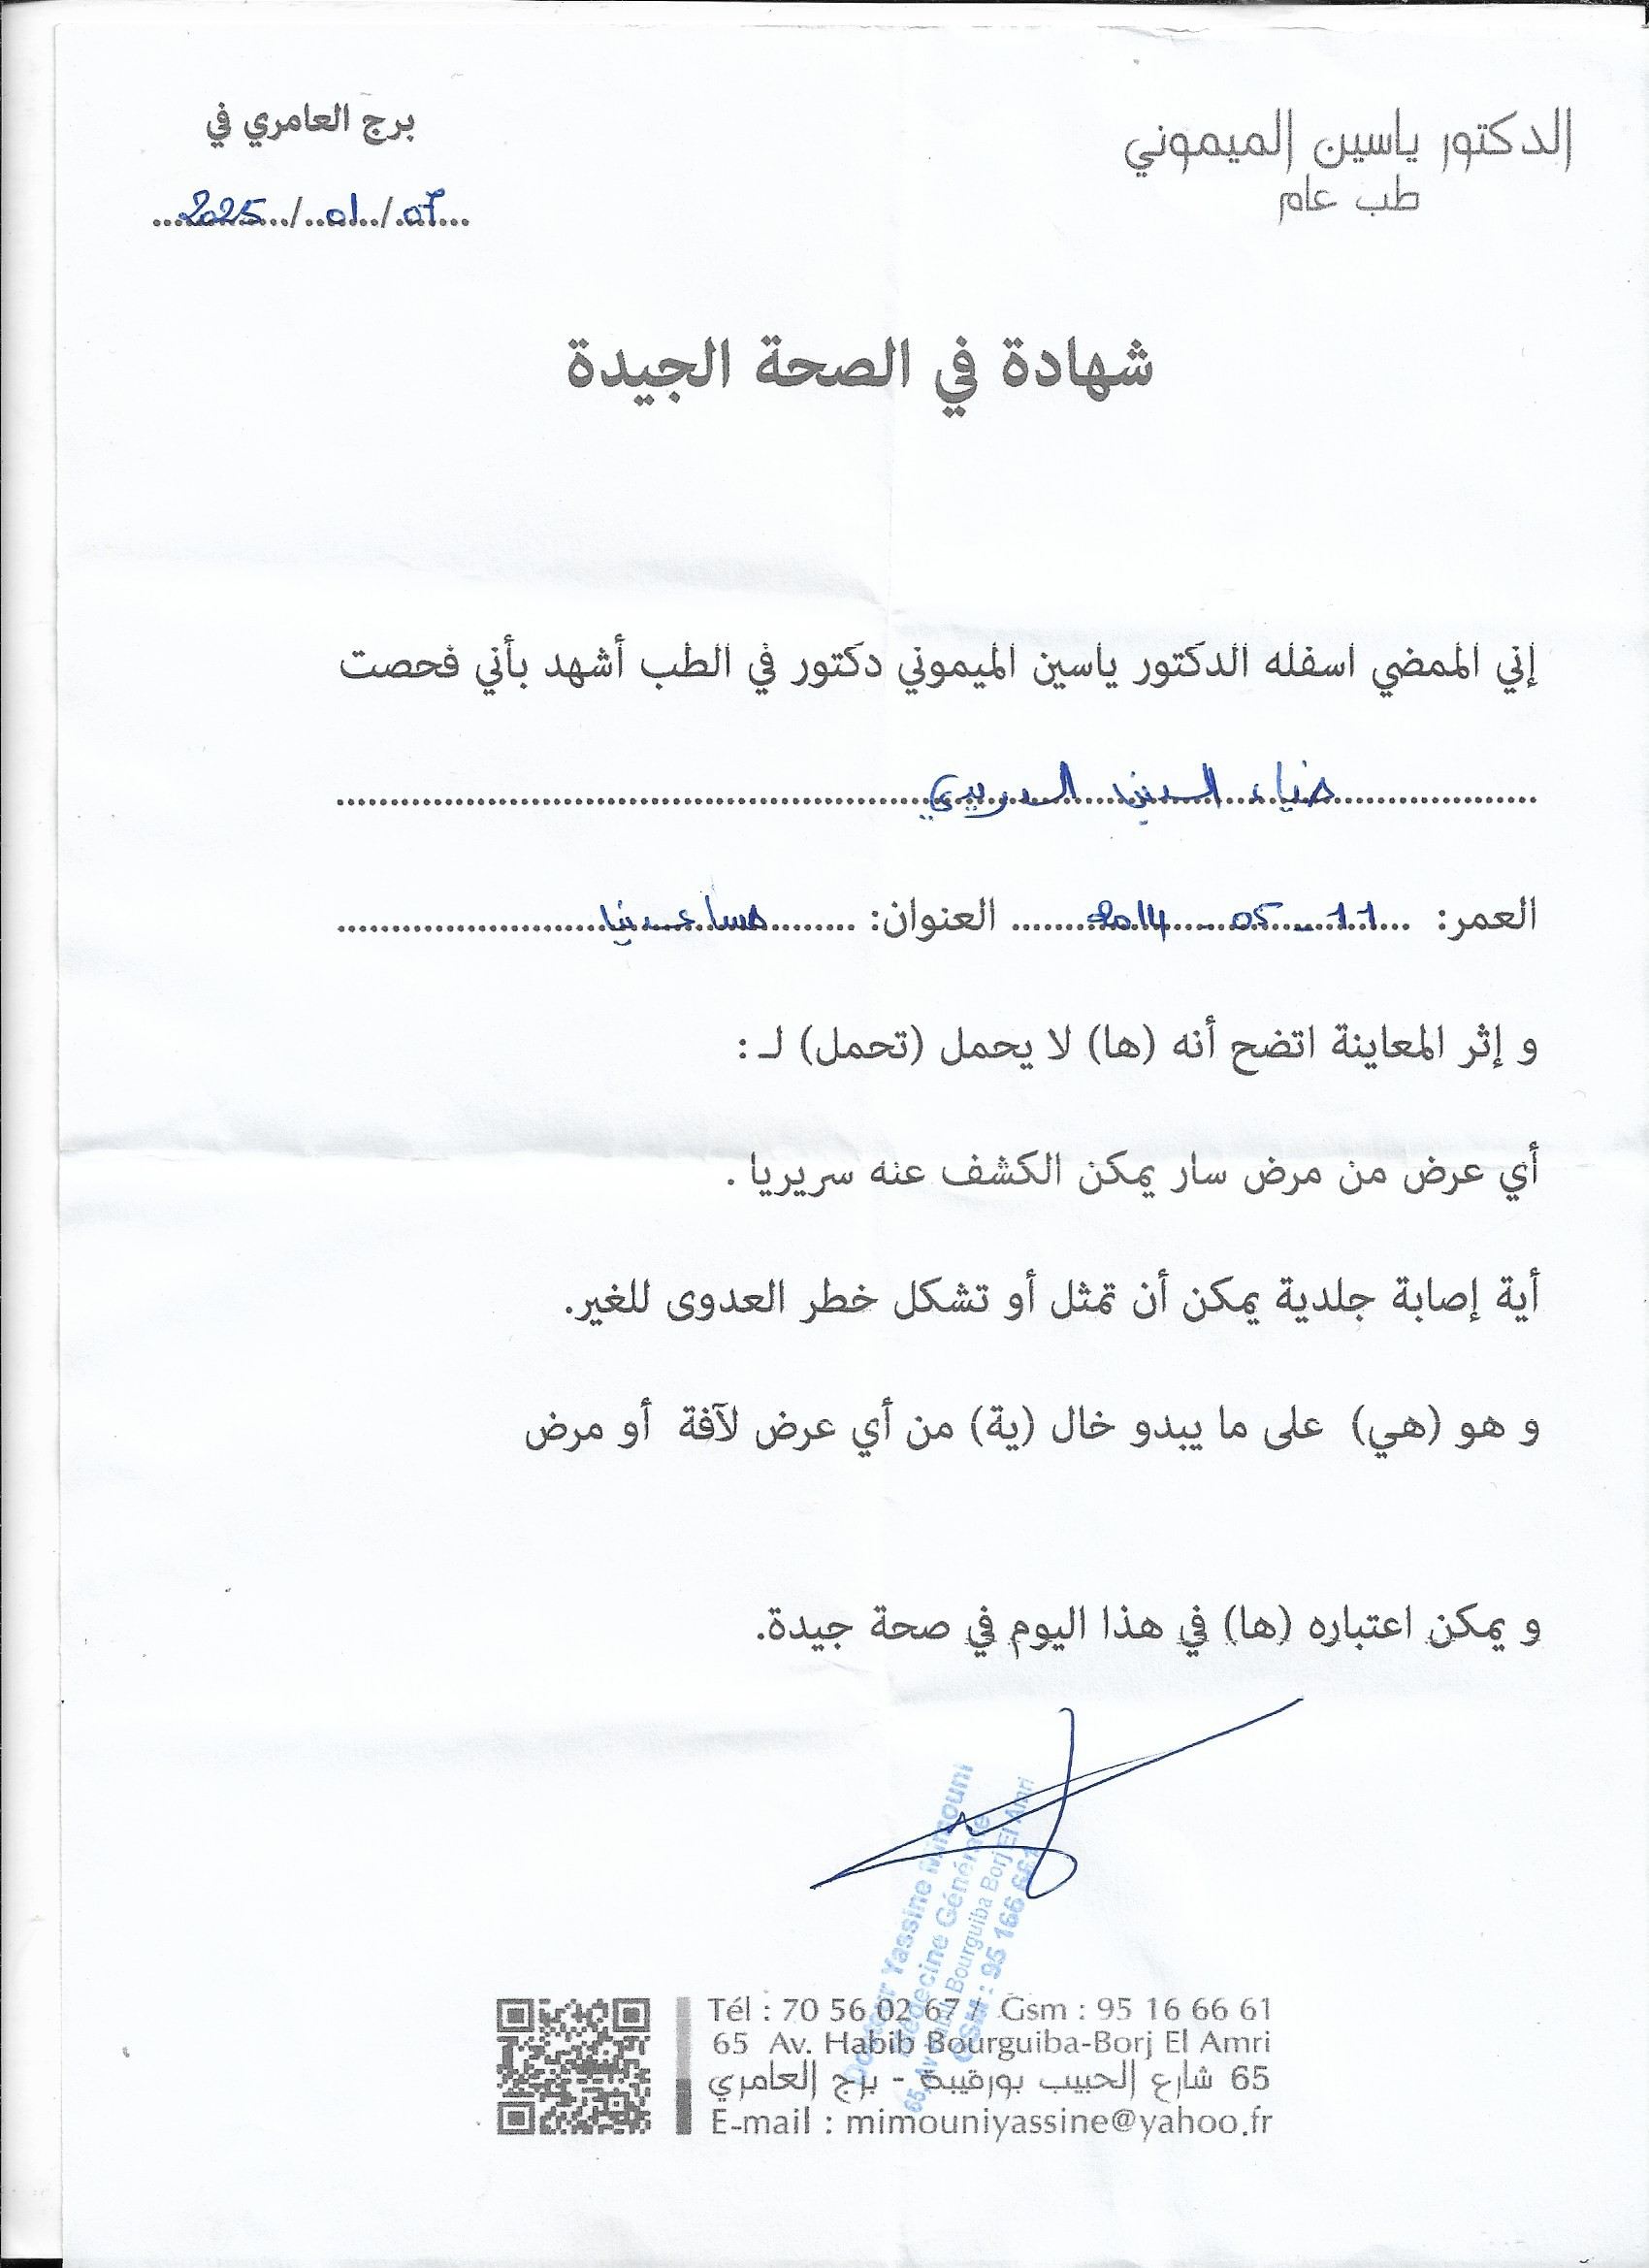 الدكتور ياسين الميموني
طب عام
برج العامري في
07/01/2025
شهادة في الصحة الجيدة
إني الممضي اسفله الدكتور ياسين الميموني دكتور في الطب أشهد بأني فحصت
ضياء الدين الدريدي
العمر: 11-05-2014 العنوان:
و إثر المعاينة اتضح أنه (ها) لا يحمل (تحمل) لـ :
أي عرض من مرض سار يمكن الكشف عنه سريريا .
أية إصابة جلدية يمكن أن تمثل أو تشكل خطر العدوى للغير.
و هو (هي) على ما يبدو خال (ية) من أي عرض لآفة أو مرض
و يمكن اعتباره (ها) في هذا اليوم في صحة جيدة.
Docteur Yassine Mimouni
Médecine Générale
65, Av Habib Bourguiba Borj El Amri
GSM : 95 166 661
Tél : 70 56 02 67 / Gsm : 95 16 66 61
65 Av. Habib Bourguiba-Borj El Amri
65 شارع الحبيب بورقيبة - برج العامري
E-mail : mimouniyassine@yahoo.fr